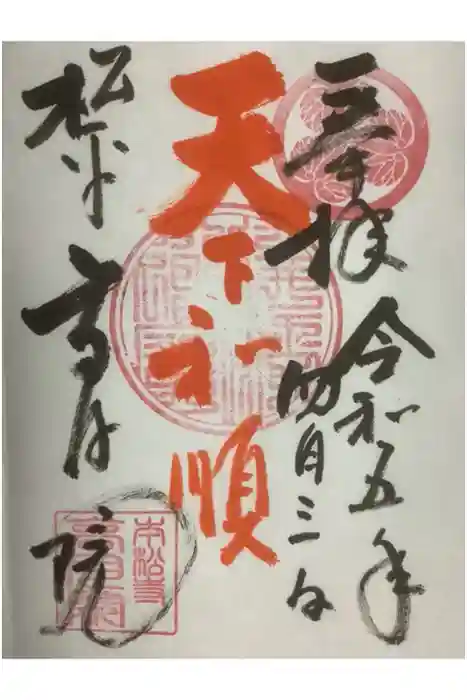 奉拝
令和五年
四月三日
天下和順
松平
高月院
高月院